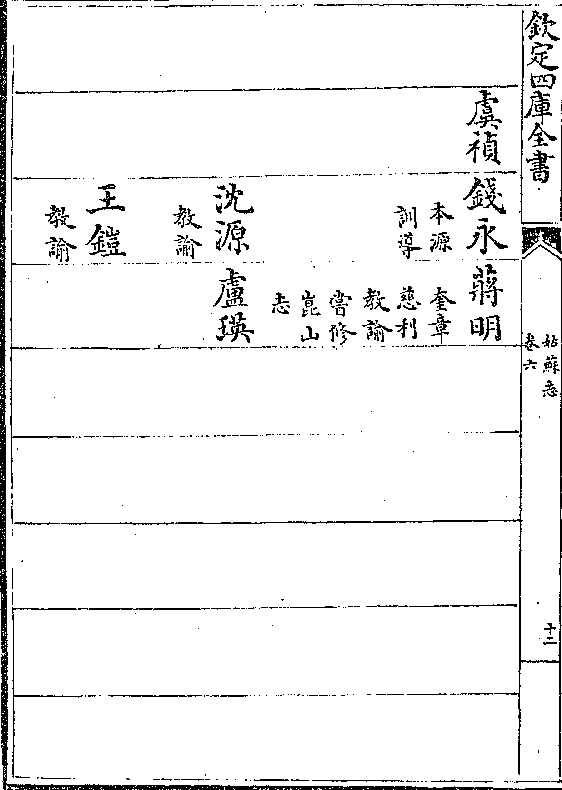 欽定四庫全書
姑蘇志
卷六
十二
虞禎
錢永
本源
訓導
沈源
教諭
王鎧
教諭
蔣明
奎章
慈利
教諭
嘗修
崑山
志
盧瑛